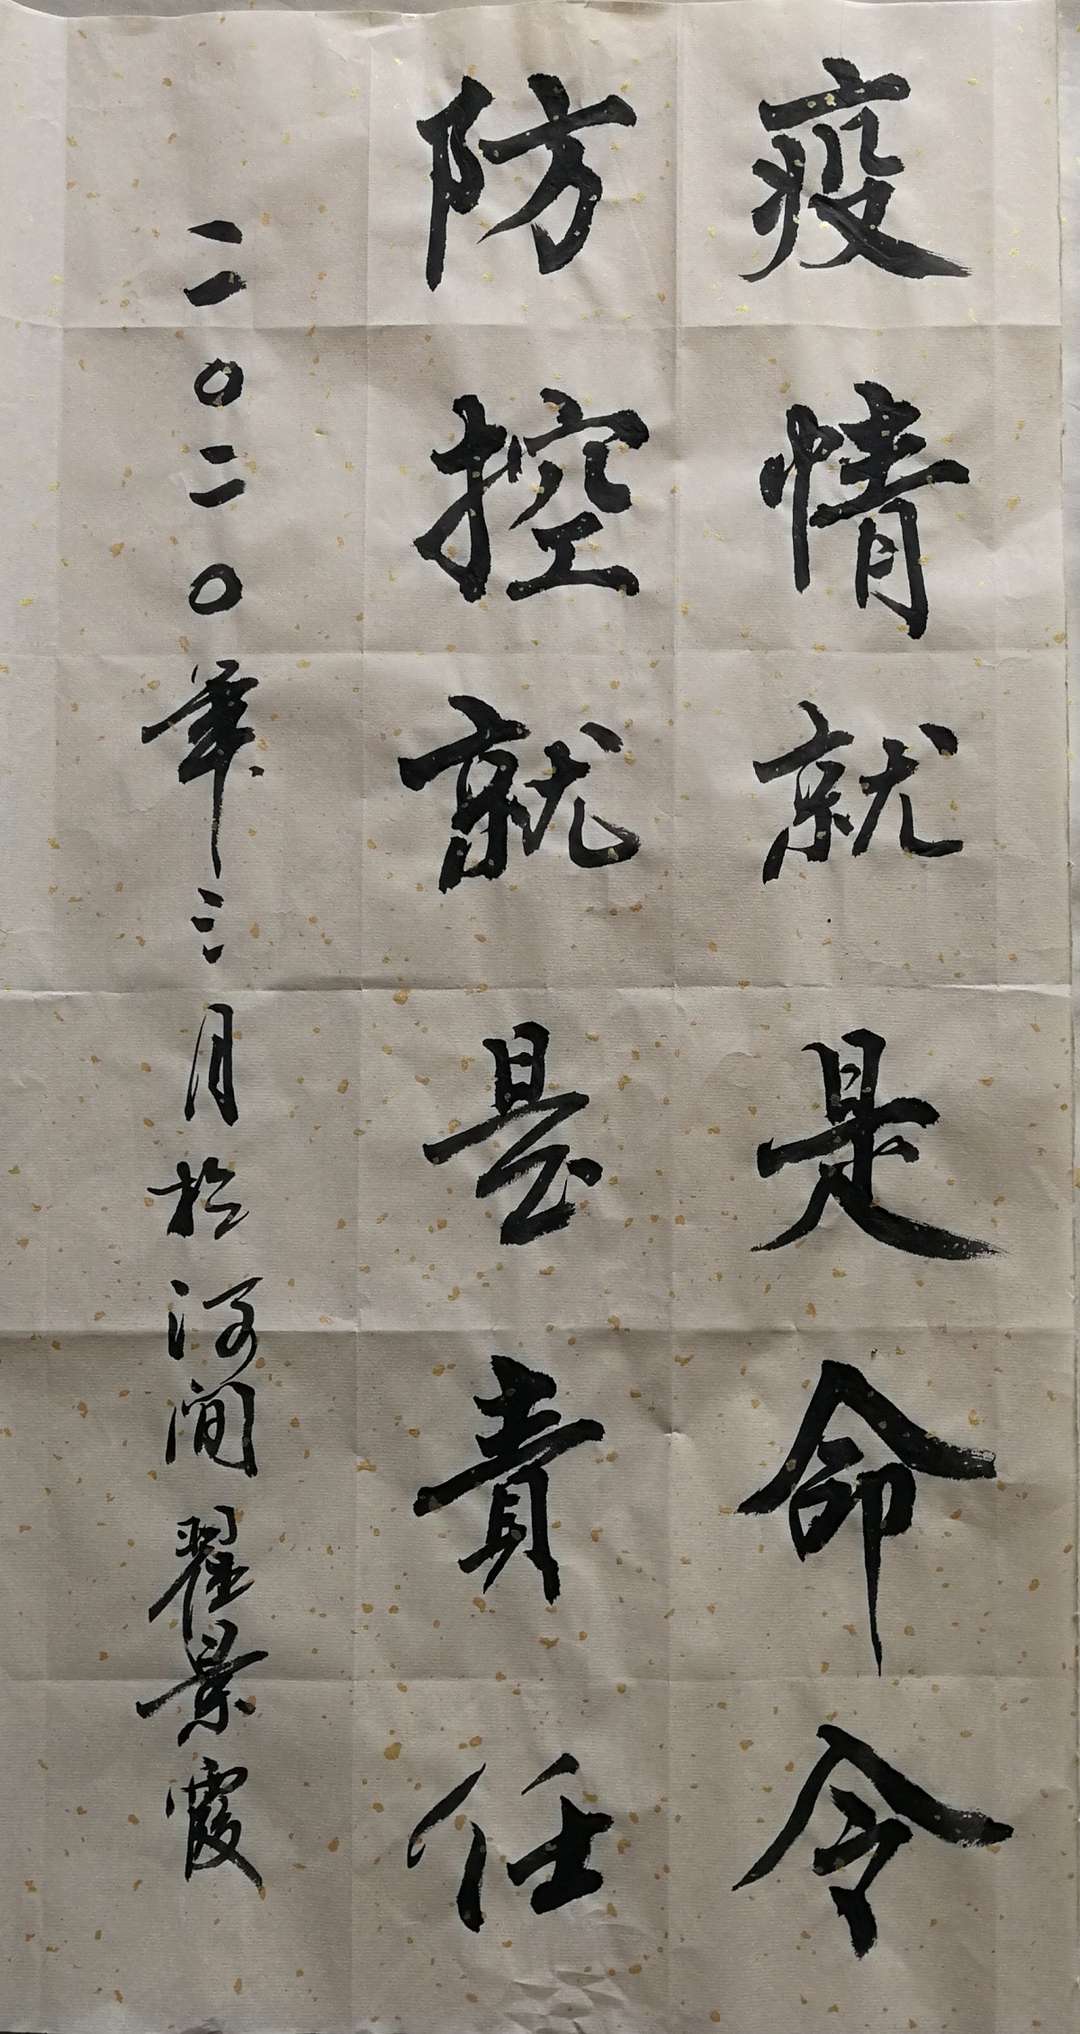 疫情就是命令
防控就是責任
二〇二〇年三月於河间翟景霞